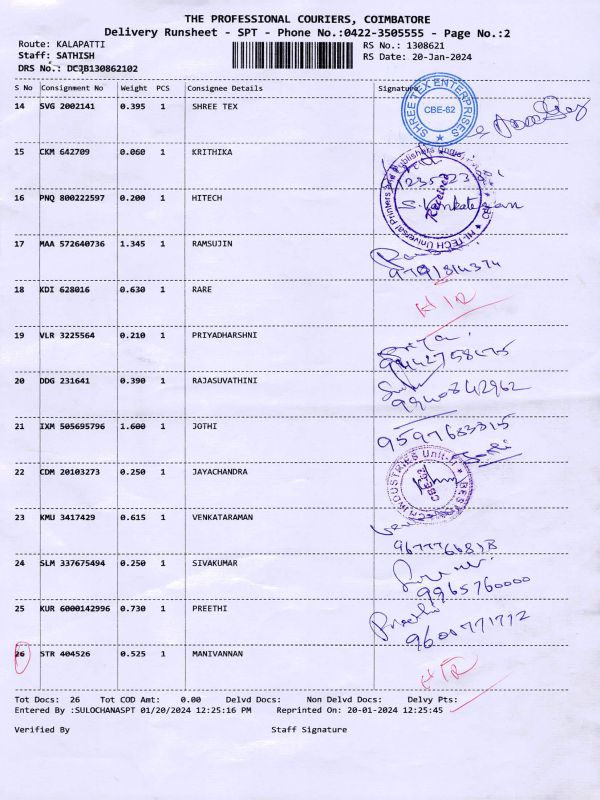 THE PROFESSIONAL COURIERS, COIMBATORE
Delivery Runsheet - SPT - Phone No.:0422-3505555 - Page No.:2
Route: KALAPATTI RS No.: 1308621
Staff: SATHISH RS Date: 20-Jan-2024
DRS No.: DCJB130862102
S No Consignment No Weight PCS Consignee Details Signature
14 SVG 2002141 0.395 1 SHREE TEX
SHREE TEX ENTERPRISES
CBE-62
15 CKM 642709 0.060 1 KRITHIKA
16 PNQ 800222597 0.200 1 HITECH
HI-TECH Universal Printers and Publishers
Received
17 MAA 572640736 1.345 1 RAMSUJIN
9791314374
18 KDI 628016 0.630 1 RARE
19 VLR 3225564 0.210 1 PRIYADHARSHNI
20 DDG 231641 0.390 1 RAJASUVATHINI
9940842962
21 IXM 505695796 1.600 1 JOTHI
9597683315
22 CDM 20103273 0.250 1 JAYACHANDRA
INDUSTRIES Unit-II
23 KMU 3417429 0.615 1 VENKATARAMAN
24 SLM 337675494 0.250 1 SIVAKUMAR
9965760000
25 KUR 6000142996 0.730 1 PREETHI
Preethi
9600771772
26 STR 404526 0.525 1 MANIVANNAN
Tot Docs: 26 Tot COD Amt: 0.00 Delvd Docs: Non Delvd Docs: Delvy Pts:
Entered By :SULOCHANASPT 01/20/2024 12:25:16 PM Reprinted On: 20-01-2024 12:25:45
Verified By Staff Signature